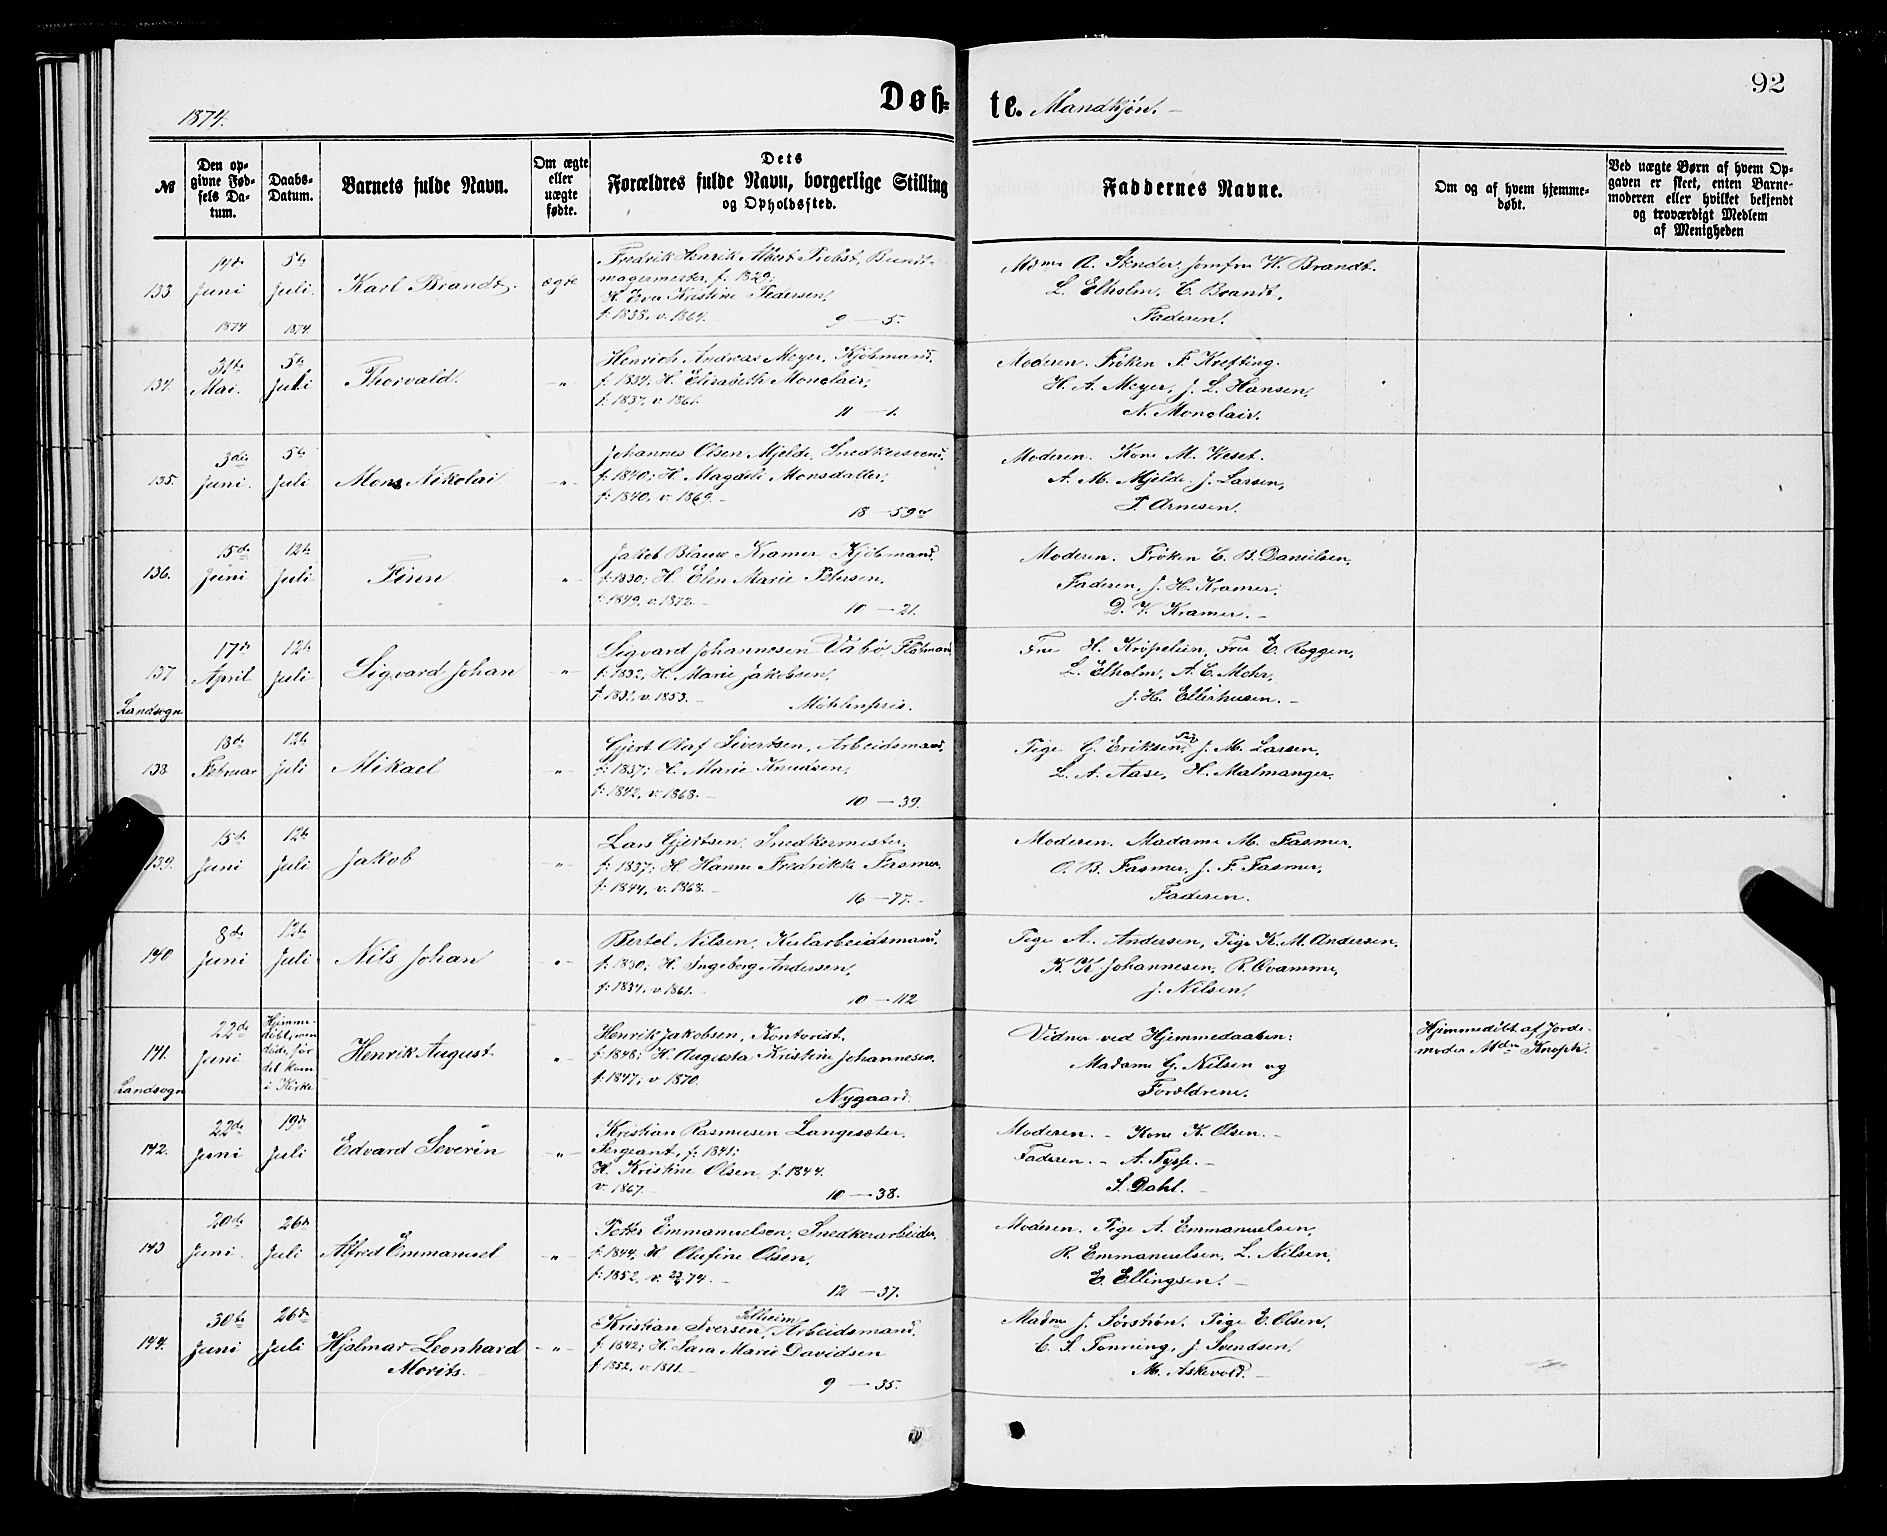 1874.
Døb-
te.
Mandkjøn. -
92
№
Den op-
givne Fød-
sels Da-
tum.
Daabs-
Datum.
Barnets fulde Navn.
Om ægte
eller
uægte
fødte.
Dets
Forældres fulde Navn, borgerlige Stilling
og Opholdssted.
Faddernes Navne.
Om og af hvem hjemme-
døbt.
Ved uægte Børn af hvem Op-
gaven er skeet, enten Barne-
moderen eller hvilket bekjendt
og troværdigt Medlem
af Menigheden
133.
14de
Juni
1874
5te
Juli.
1874
Karl Brandt.
ægte
Fredrik Henrik Albert Probst, Bundt-
magermester, f. 1829;
H. Eva Kristine Pedersen,
f. 1838, v. 1864. 9 - 5.
Mdme A. Stender, Jomfru W. Brandt.
L. Elholm, C. Brandt,
Faderen.
134.
31te
Mai.
5te
Juli
Thorvald.
- " -
Henrich Andreas Meyer, Kjøbmand.
f. 1834; H. Elisabeth Monclair,
f. 1837, v. 1861. 11 - 1.
Moderen. Frøken F. Krefting.
H. A. Meyer, J. L. Hansen,
N. Monclair.
135.
3die
Juni.
5te
Juli
Mons Nikolai
- " -
Johannes Olsen Mjelde, Snedkersvend.
f. 1840; H. Magdeli Monsdatter,
f. 1840, v. 1869. 18 - 59a
Moderen. Kone M. Veset.
A. M. Mjelde. J. Larsen,
T. Arnesen.
136.
15de
Juni
12te
Juli
Finn
- " -
Jakob Blauw Kramer Kjøbmand.
f. 1830; H. Elen Marie Petersen,
f. 1849, v. 1872. - 10 - 21.
Moderen. Frøken C. B. Danielsen,
Faderen, J. H. Kramer,
D. V. Kramer. -
137
Landsogn
17de
April
12te
Juli
Sigvard Johan
- " -
Sigvard Johannesen Vabø, Flåtmand
f. 1832, H. Marie Jakobsen,
f. 1831, v. 1853. - Møhlenpris.
Fru H. Krøpelien, Fru E. Roggen,
L. Elholm, A. C. Mohr,
J. H. Ellerhusen. -
138
18de
Februar
12te
Juli
Mikael
- " -
Gjert Olaf Sivertsen, Arbeidsmand,
f. 1837; H. Marie Knudsen,
f. 1842, v. 1868. - 10 - 39.
Pige G. Eriksen, Pige J. M. Larsen,
L. A. Aase, H. Malmanger.
139.
15de
Juni
12te
Juli
Jakob
- " -
Lars Gjertsen, Snedkermester,
f. 1837; H. Hanna Fredrikke Fasmer.
f. 1844, v. 1868. - 16 - 77. -
Moderen. Madame M. Fasmer.
O. B. Fasmer, J. F. Fasmer,
Faderen.
140
8de
Juni
12te
Juli
Nils Johan
- " -
Bertel Nilsen, Kularbeidsmand.
f. 1830; H. Ingeborg Andersen,
f. 1834, v. 1861. - 10 - 112
Pige A. Andersen, Pige K. M. Andersen,
K. K. Johannesen, R. Qvamme,
J. Nilsen.
141.
Landsogn
22de
Juni
Hjemme-
døbt, men
døde, før
det kom
i Kirke
Henrik August
"
Henrik Jakobsen, Kontorist.
f. 1848; H. Augusta Kristine Johannesen.
f. 1847; v 1870. Nygaard.
Vidner ved Hjemmedaaben:
Madame G. Nilsen og
Forældrene.
Hjemmedøbt af Jorde-
moder Mdm Knoph.
142.
22de
Juni
19de
Juli
Edvard Severin
- " -
Kristian Rasmusen Langesæter,
Sergeant, f. 1841;
H. Kristine Olsen, f. 1844.
v. 1867. - 10 - 38.
Moderen. - Kone K. Olsen. -
Faderen. - A. Tysse. -
S. Dahl. -
143
20de
Juni.
26de
Juli
Alfred Emmanuel
- " -
Petter Emmanuelsen, Snedkerarbeider,
f. 1844, H. Olufine Olsen,
f. 1852, v. 74. - 12 - 37.
Moderen. Pige A. Emmanuelsen,
R. Emmanuelsen, L. Nilsen,
E. Ellingsen. -
144.
30te
Juni
26de
Juli
Hjalmar Leonhard
Morits. -
- " -
Kristian Iversen Solheim, Arbeidsmand.
f. 1842; H. Sara Marie Davidsen
f. 1852, v. 1871. - 9 - 35.
Madme J. Sørstrøn. Pige E. Olsen,
C. S. Tonning, J. Svendsen,
M. Askevold. -